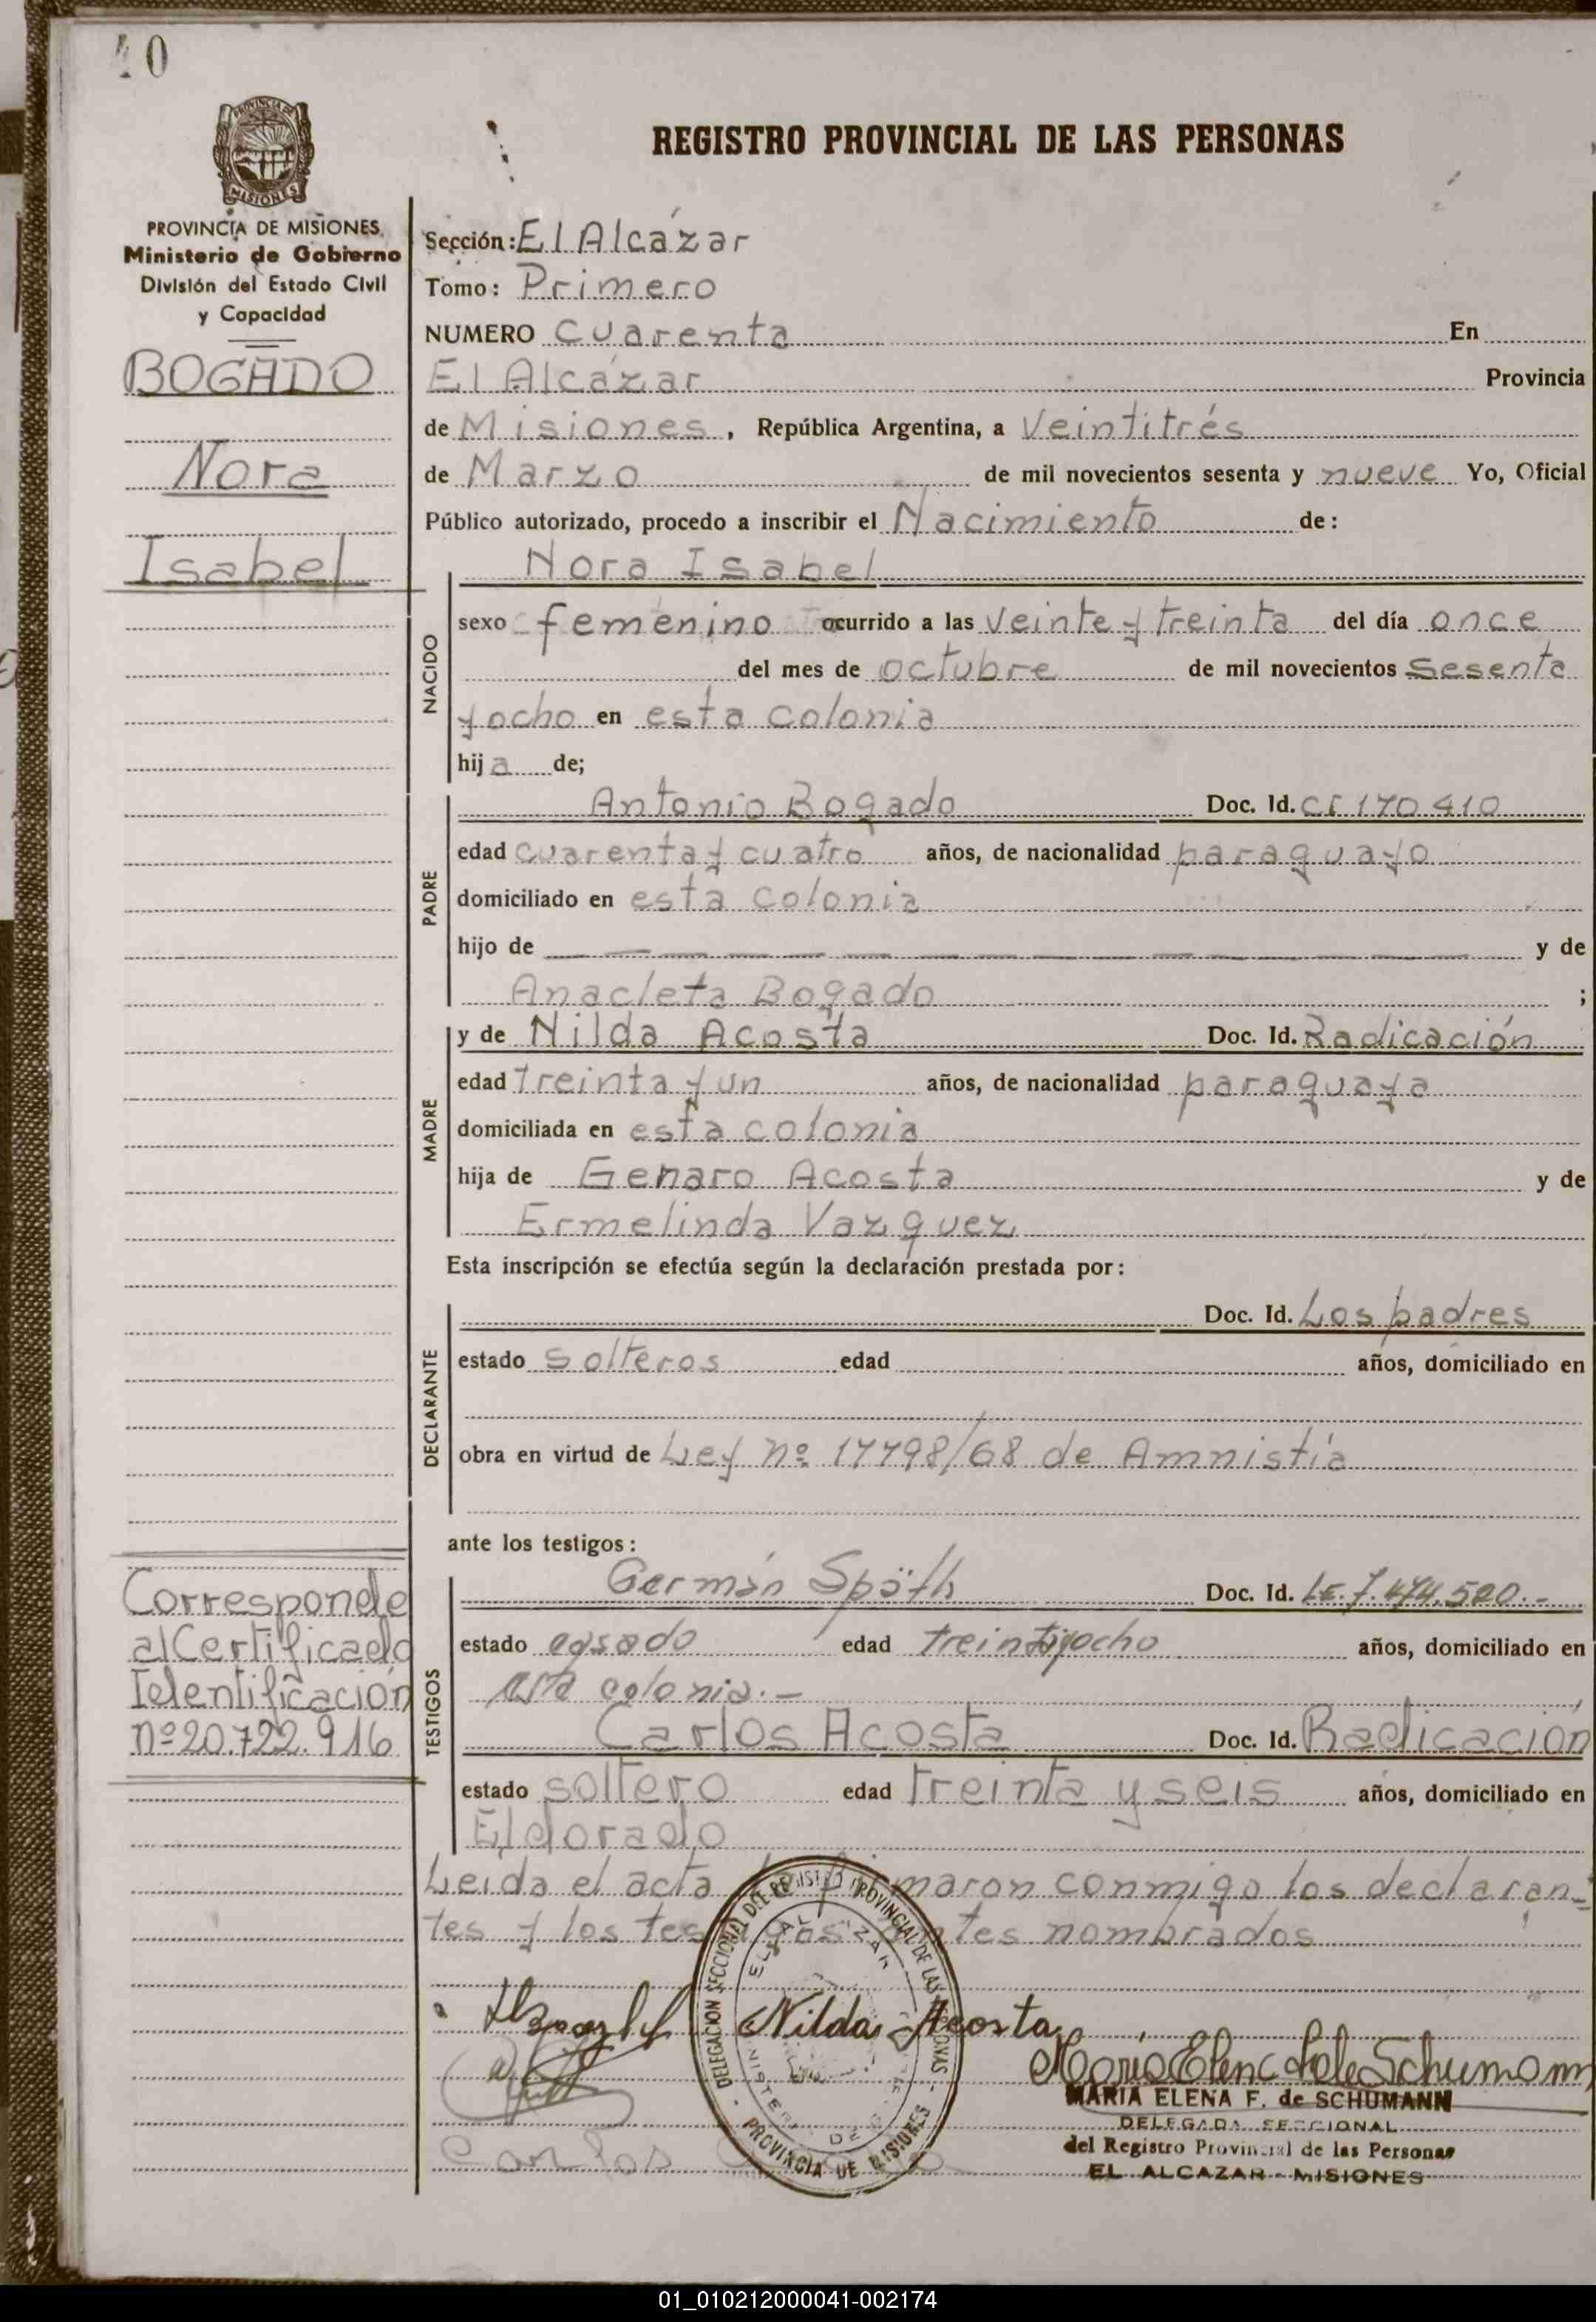 40
PROVINCIA DE MISIONES
PROVINCIA DE MISIONES
Ministerio de Gobierno
División del Estado Civil
y Capacidad
BOGADO
Nora
Isabel
Corresponde
al Certificado
Identificación
nº 20.722.916
REGISTRO PROVINCIAL DE LAS PERSONAS
Sección: El Alcázar
Tomo: Primero
NUMERO cuarenta En
El Alcázar Provincia
de Misiones, República Argentina, a Veintitrés
de Marzo de mil novecientos sesenta y nueve Yo, Oficial
Público autorizado, procedo a inscribir el Nacimiento de:
Nora Isabel
NACIDO
sexo femenino ocurrido a las veinte y treinta del día once
del mes de octubre de mil novecientos sesenta
y ocho en esta colonia
hija de;
PADRE
Antonio Bogado Doc. Id. CI 170.410
edad cuarenta y cuatro años, de nacionalidad paraguayo
domiciliado en esta colonia
hijo de — — — — — — — — — — y de
Anacleta Bogado ;
MADRE
y de Nilda Acosta Doc. Id. Radicación
edad treinta y un años, de nacionalidad paraguaya
domiciliada en esta colonia
hija de Genaro Acosta y de
Ermelinda Vazquez
Esta inscripción se efectúa según la declaración prestada por:
DECLARANTE
Doc. Id. Los padres
estado solteros edad años, domiciliado en
obra en virtud de Ley nº 17798/68 de Amnistía
ante los testigos:
TESTIGOS
Germán Späth Doc. Id. LE. 7.474.520.-
estado casado edad treintiyocho años, domiciliado en
esta colonia.-
Carlos Acosta Doc. Id. Radicación
estado soltero edad treinta y seis años, domiciliado en
Eldorado
Leída el acta la firmaron conmigo los declaran-
tes y los testigos antes nombrados
Nilda Acosta
DELEGACION SECCIONAL DEL REGISTRO PROVINCIAL DE LAS PERSONAS
EL ALCAZAR
MINISTERIO DE
PROVINCIA DE MISIONES
Maria Elena F. de Schumann
MARIA ELENA F. de SCHUMANN
DELEGADA SECCIONAL
del Registro Provincial de las Personas
EL ALCAZAR - MISIONES
Carlos
01_010212000041-002174